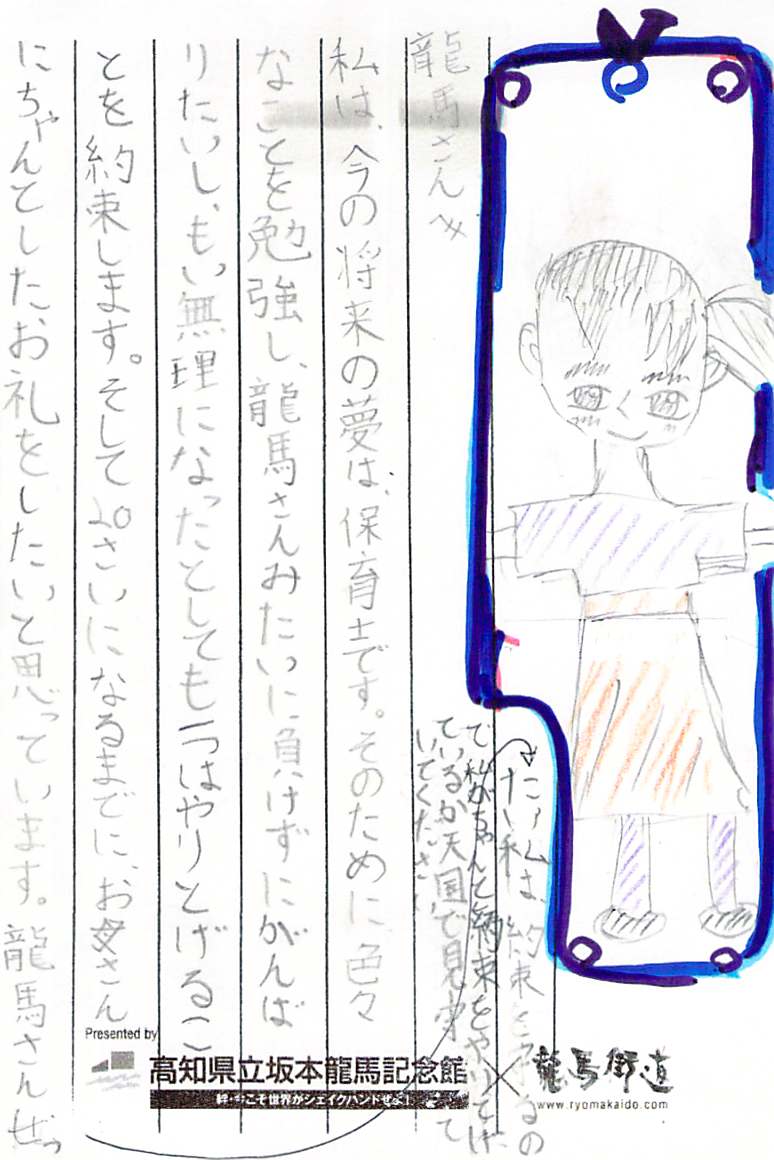 龍馬さんへ
私は、今の将来の夢は、保育士です。そのために色々
なことを勉強し、龍馬さんみたいに負けずにがんば
りたいし、もし無理になったとしても一つはやりとげるこ
とを約束します。そして20さいになるまでに、お母さん
にちゃんとしたお礼をしたいと思っています。龍馬さんぜっ
たい私は、約束を守るの
で私がちゃんと約束をやりとげ
ているか天国で見守って
いてください。
Presented by
高知県立坂本龍馬記念館
絆・今こそ世界がシェイクハンドぜよ!
龍馬街道
www.ryomakaido.com